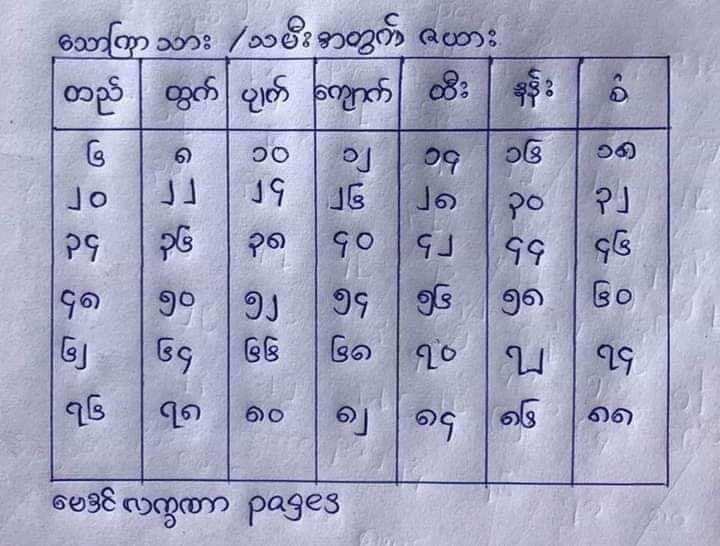 သောကြာ သား / သမီး စာတွက် ဇယား
တည် ထွက် ပျက် ကျောက် ထီး နန်း စံ
၆ ၈ ၁၀ ၁၂ ၁၄ ၁၆ ၁၈
၂၀ ၂၂ ၂၄ ၂၆ ၂၈ ၃၀ ၃၂
၃၄ ၃၆ ၃၈ ၄၀ ၄၂ ၄၄ ၄၆
၄၈ ၅၀ ၅၂ ၅၄ ၅၆ ၅၈ ၆၀
၆၂ ၆၄ ၆၆ ၆၈ ၇၀ ၇၂ ၇၄
၇၆ ၇၈ ၈၀ ၈၂ ၈၄ ၈၆ ၈၈
ဗေဒင် လက္ခဏာ pages